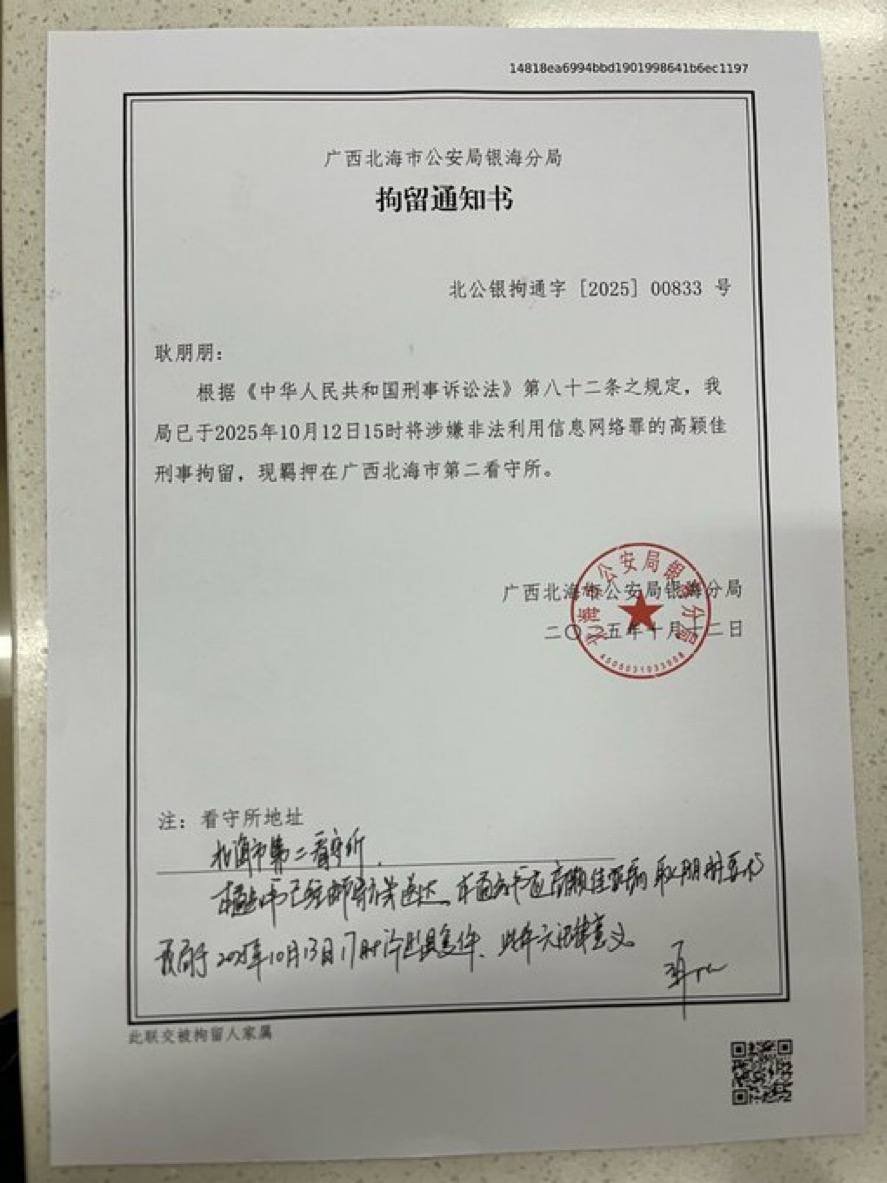 14818ea6994bbd1901998641b6ec1197
广西北海市公安局银海分局
拘留通知书
北公银拘通字 [2025] 00833 号
耿朋朋：
根据《中华人民共和国刑事诉讼法》第八十二条之规定，我
局已于2025年10月12日15时将涉嫌非法利用信息网络罪的高颖佳
刑事拘留，现羁押在广西北海市第二看守所。
广西北海市公安局银海分局
二〇二五年十月十二日
北海市公安局银海分局
4505031033008
注：看守所地址
北海市第二看守所.
本通知书已经邮寄方式送达。本通知书应高颖佳家属耿朋朋要求
我局于2025年10月13日17时许出具复件、此件无法律意义
此联交被拘留人家属